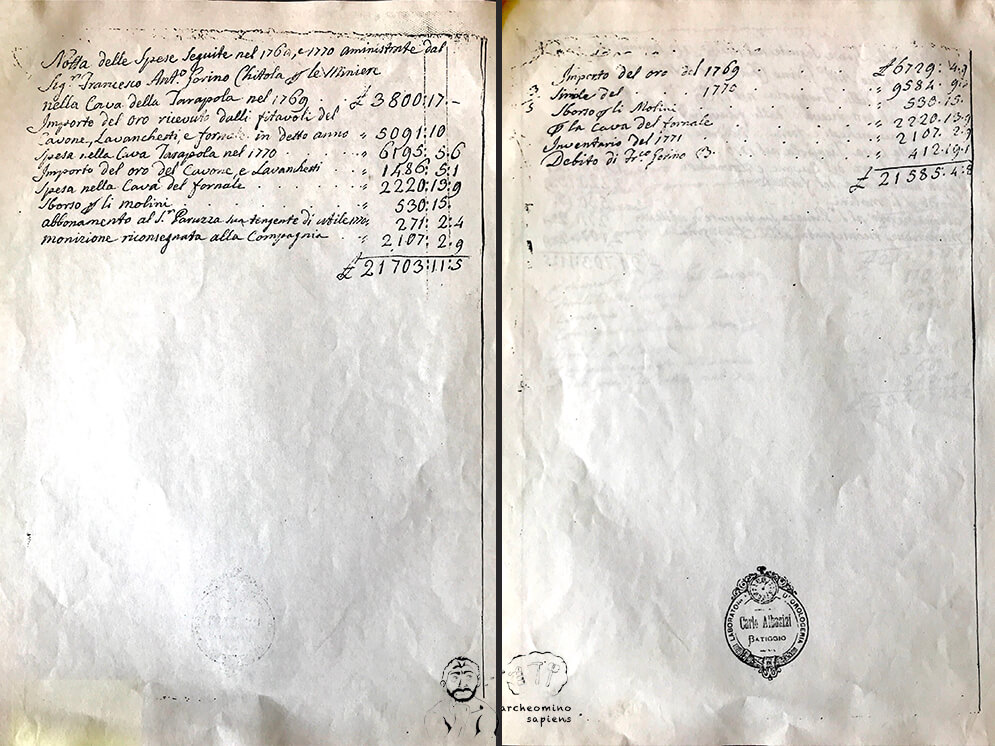 Notta delle Spese Seguite nel 1769, e 1770 aministrate dal
Sig.r Francesco Ant.o Forino Chitola per le Miniere
nella Cava della Tarapola nel 1769 £ 3800:17.-
Importo del oro ricevuto dalli fitavoli del
Cavone, Lavanchetti e fornale in detto anno " 5091:10
Spesa nella Cava Tarapola nel 1770 " 6195:5:6
Importo del oro del Cavone, e Lavanchetti " 1486:5:1
Spesa nella Cava del fornale " 2220:13:9
Sborso per li molini " 530:15:
abbonamento al S.r Paruzza sua tangente di utile " 271:2:4
monizione riconsegnata alla Compagnia " 2107:2:9
£ 21703:11:5
Importo del oro del 1769 £ 6729:4:9
Simile del 1770 " 9584:9:
Sborso per li Molini " 530:15:
per la Cava del fornale " 2220:13:9
Inventario del 1771 " 2107:2:9
Debito di Forino " 412:19:1
£ 21585:4:8
LABORATORIO D'OROLOGERIA
Carlo Albasini
BATIGGIO
archeomino
sapiens